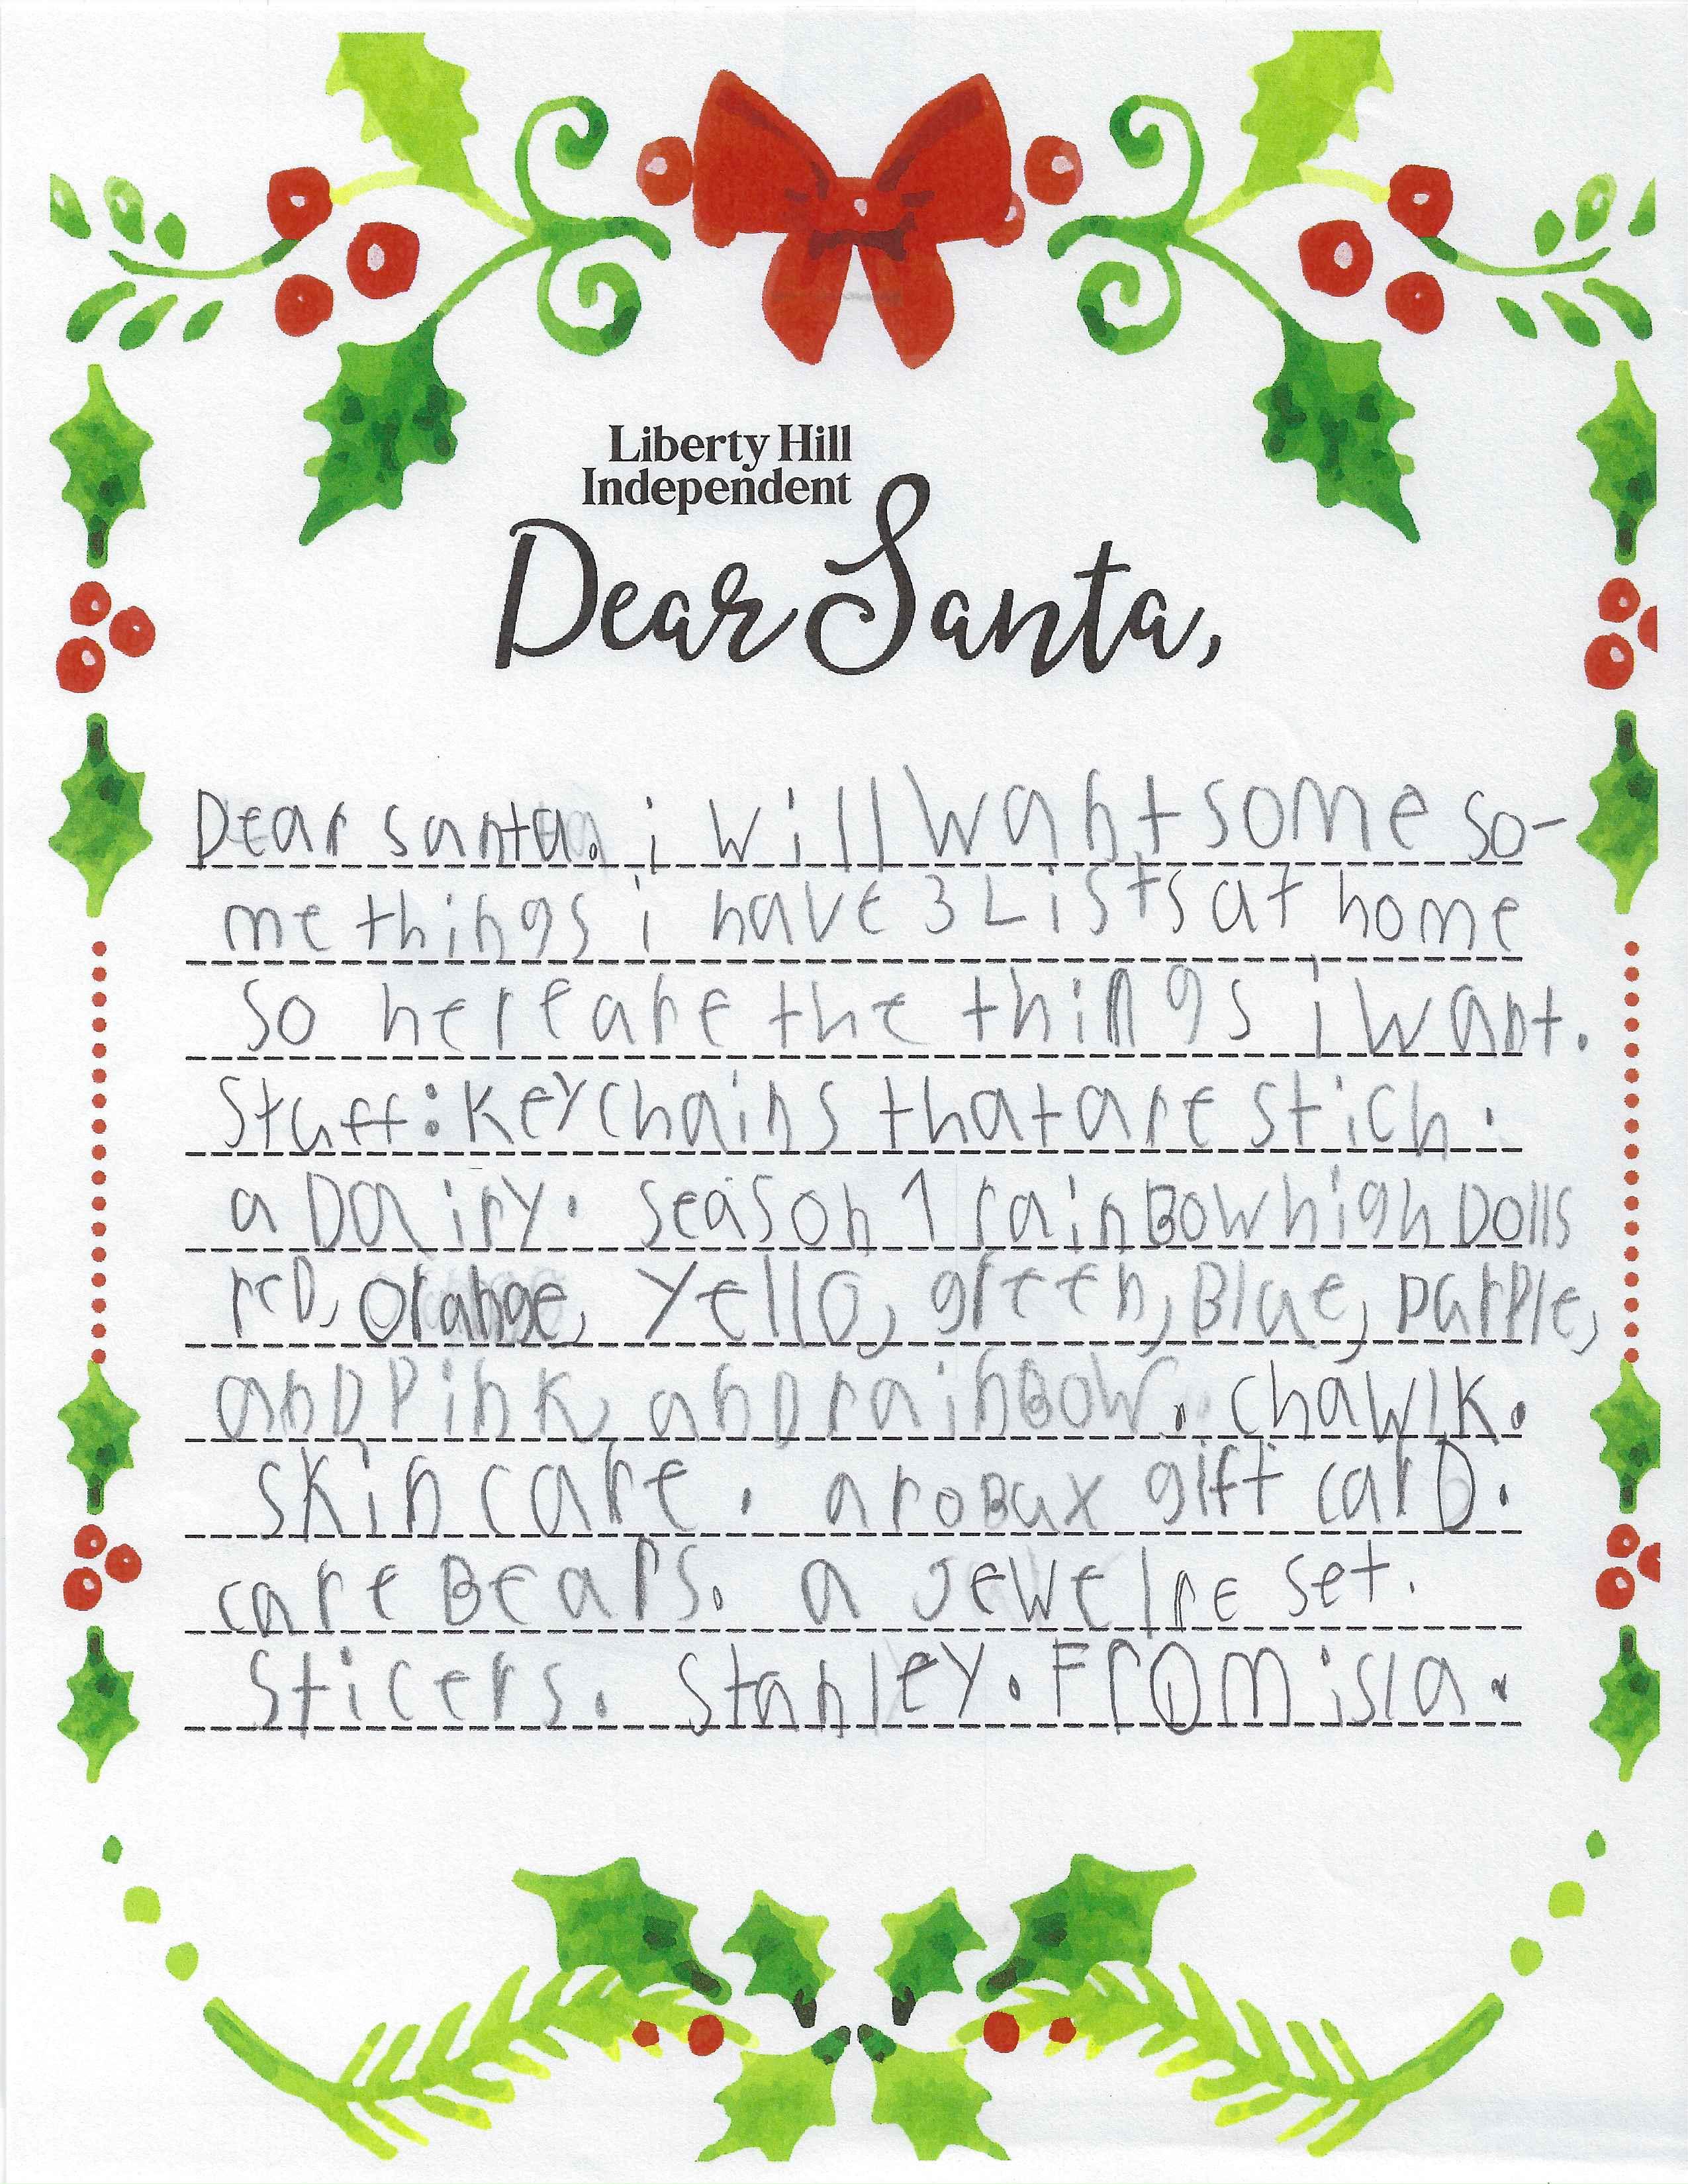 Liberty Hill
Independent
Dear Santa,
Dear santa. i will want some so-
me things i have 3 Lists at home
So here are the things i want.
Stuff: Keychains that are stich.
a Dairy. season 1 rainBow high Dolls
reD, orange, Yello, green, Blue, purple,
anD Pink, anD rainBow. chawlk.
skin care. a roBux gift carD.
care Bears. a Jewelre set.
Sticers. Stanley. From isla.